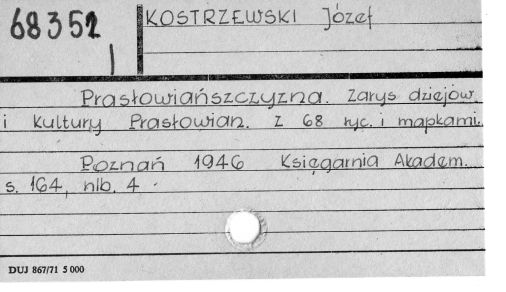 68352
I
KOSTRZEWSKI Józef
Prasłowiańszczyzna. Zarys dziejów
i kultury Prasłowian. Z 68 ryc. i mapkami.
Poznań 1946 Księgarnia Akadem.
s. 164, nlb. 4.
DUJ 867/71 5 000